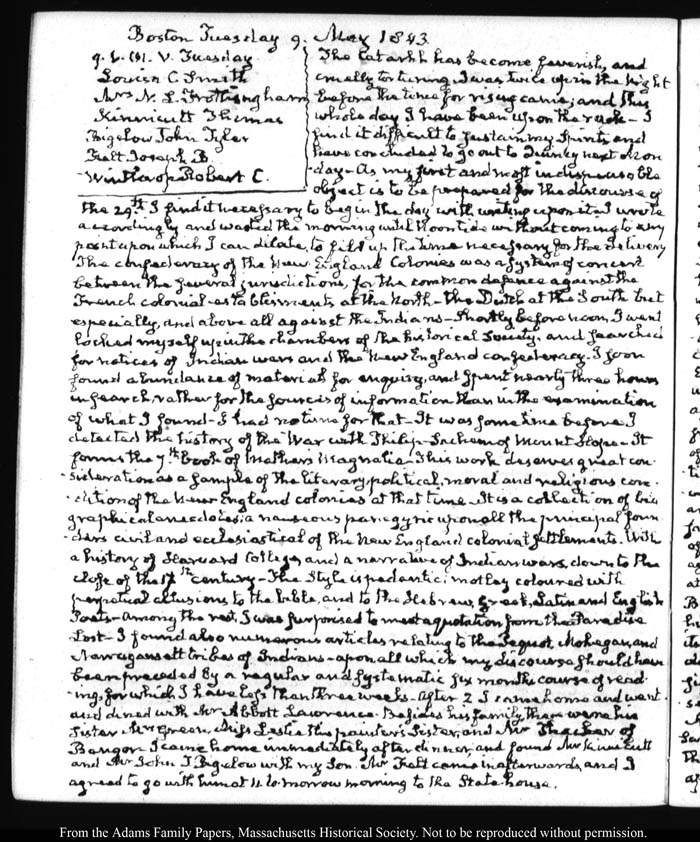 Boston Tuesday 9. May 1843.
9. V. Tuesday
Smith
Mrs N. L. Frothingham
Kinnicutt Thomas
Bigelow John Tyler
Felt Joseph B.
Winthrop Robert C.
The Catarrh has become feverish, and
cruelly torturing. I was twice up in the night
before the time for rising came; and this
whole day I have been upon the rack — I
find it difficult to sustain my Spirits, and
have concluded to go out to Quincy next Mon
day — As my first and most indispensable
object is to be prepared for the discourse of
the 29.th I find it necessary to begin the day with writing upon it — I wrote
accordingly and wasted the morning until Noontide without coming to any
point upon which I can dilate, to fill up the time necessary for the delivery
The confederacy of the New England Colonies was a system of concert
between the several jurisdictions, for the common defence against the
French colonial establishments at the North — the Dutch at the South but
especially, and above all against the Indians — Shortly before noon, I went
locked myself up in the chambers of the historical Society, and searched
for notices of Indian wars and the New England confederacy. I soon
found abundance of materials for enquiry, and spent nearly three hours
in search rather for the sources of information than in the examination
of what I found — I had no time for that — It was some time before I
detected the history of the War with Philip — Sachem of Mount Hope — It
forms the 7.th book of Mathers Magnalia. This work deserves great con
sideration as a sample of the literary, political, moral and religious con
dition of the New England colonies at that time — It is a collection of bio
graphical anecdotes; a nauseous panegyric upon all the principal foun
ders civil and ecclesiastical of the New England colonial settlements. With
a history of Harvard College, and a narrative of Indian wars, down to the
close of the 17th century — The Style is pedantic; motley coloured with
perpetual allusions to the bible, and to the Hebrew, Greek, Latin and English
Poets — Among the rest, I was surprised to meet a quotation from the Paradise
Lost — I found also numerous articles relating to the Pequot, Mohegan, and
Narragansett tribes of Indians — upon all which my discourse should have
been preceded by a regular and systematic six months course of read
ing, for which I have less than three weeks — After 2 I came home and went
and dined with Mr Abbott Lawrence. Besides his family there were his
Sister Mrs Green, Miss Leslie the painter's Sister, and Mr Thacher of
Bangor. I came home immediately after dinner, and found Mr Kinnicutt
and Mr John T Bigelow with my Son. Mr Felt came in afterwards, and I
agreed to go with him at 11. to-morrow morning to the State-house.
From the Adams Family Papers, Massachusetts Historical Society. Not to be reproduced without permission.